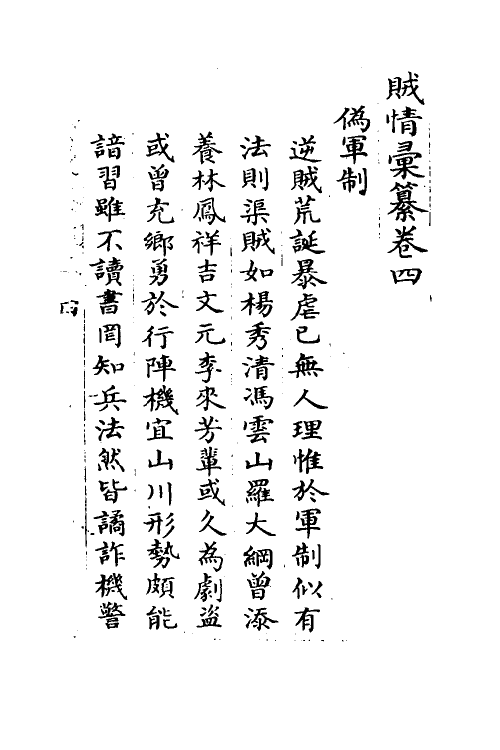 賊情彙纂卷四
偽軍制
逆賊荒誕暴虐已無人理惟於軍制似有
法則渠賊如楊秀清馮雲山羅大綱曾添
養林鳳祥吉文元李來芳輩或久為劇盜
或曾充鄉勇於行陣機宜山川形勢頗能
諳習雖不讀書罔知兵法然皆譎詐機警